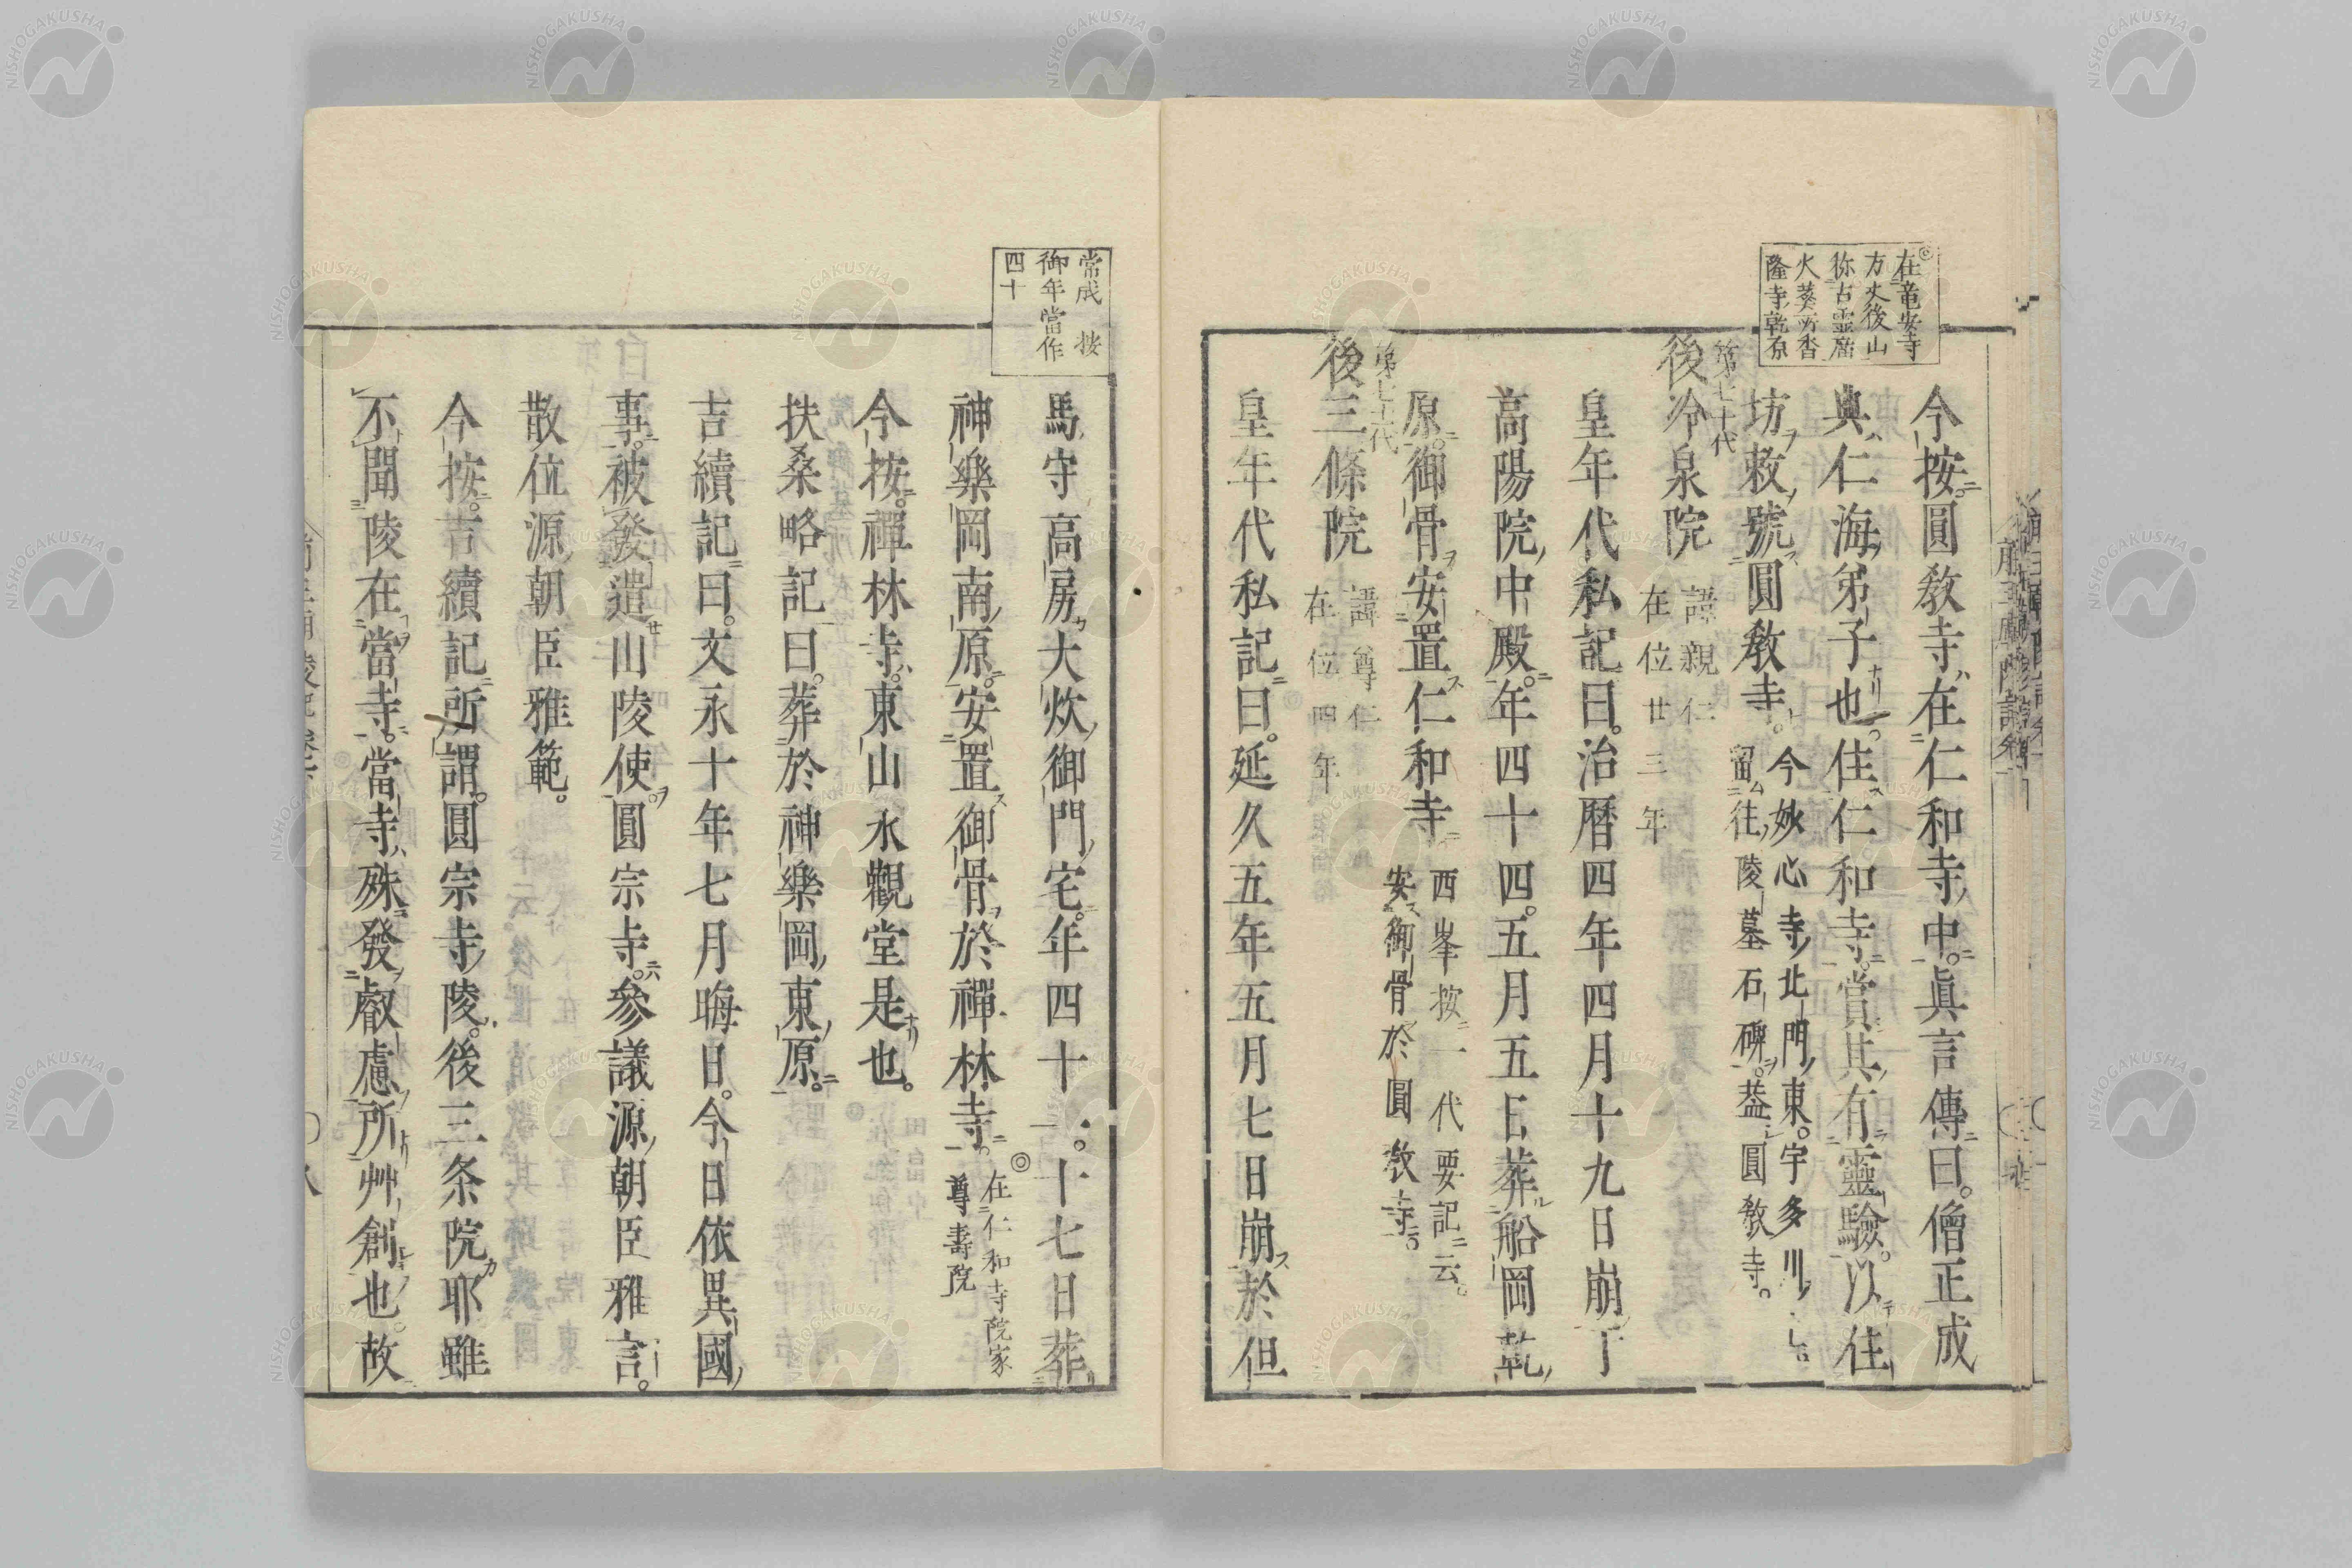 在竜安寺
方丈後山
弥古靈廟
火葬所香
隆寺乾原
今按圓敎寺在仁和寺中眞言傳曰僧正成
典仁海弟子也住仁和寺賞其有靈驗以住
坊敕號圓敎寺
今妙心寺北門東宇多川
留往陵墓石碑蓋圓敎寺
第七十代
後冷泉院
諱親仁
在位廿三年
皇年代私記曰治曆四年四月十九日崩于
高陽院中殿年四十四五月五日葬船岡乾
原御骨安置仁和寺
西峯按一代要記云
安御骨於圓敎寺
第七十一代
後三條院
諱尊仁
在位四年
皇年代私記曰延久五年五月七日崩於但
常成 按
御年當作
四十
馬守高房大炊御門宅年四十 十七日葬
神樂岡南原安置御骨於禪林寺
在仁和寺院家
尊壽院
今按禪林寺東山永觀堂是也
扶桑略記曰葬於神樂岡東原
吉續記曰文永十年七月晦日今日依異國
事被發遣山陵使圓宗寺參議源朝臣雅言
散位源朝臣雅範
今按吉續記所謂圓宗寺陵後三条院耶雖
不聞陵在當寺當寺殊發叡慮所艸創也故